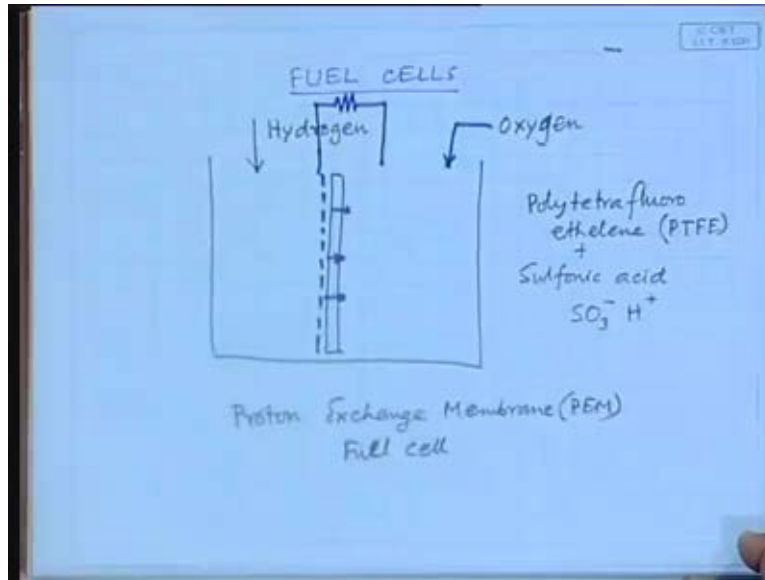 FUEL CELLS
Hydrogen
Oxygen
Polytetrafluoro
ethelene (PTFE)
+
Sulfonic acid
SO₃⁻ H⁺
Proton Exchange Membrane (PEM)
Full cell